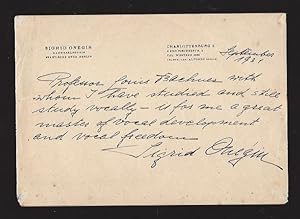 SIGRID ONEGIN
CHARLOTTENBURG 2
September
1931
Professor Louis Bachner with
whom I have studied and still
study vocally – is for me a great
master of vocal development
and vocal freedom
Sigrid Onegin